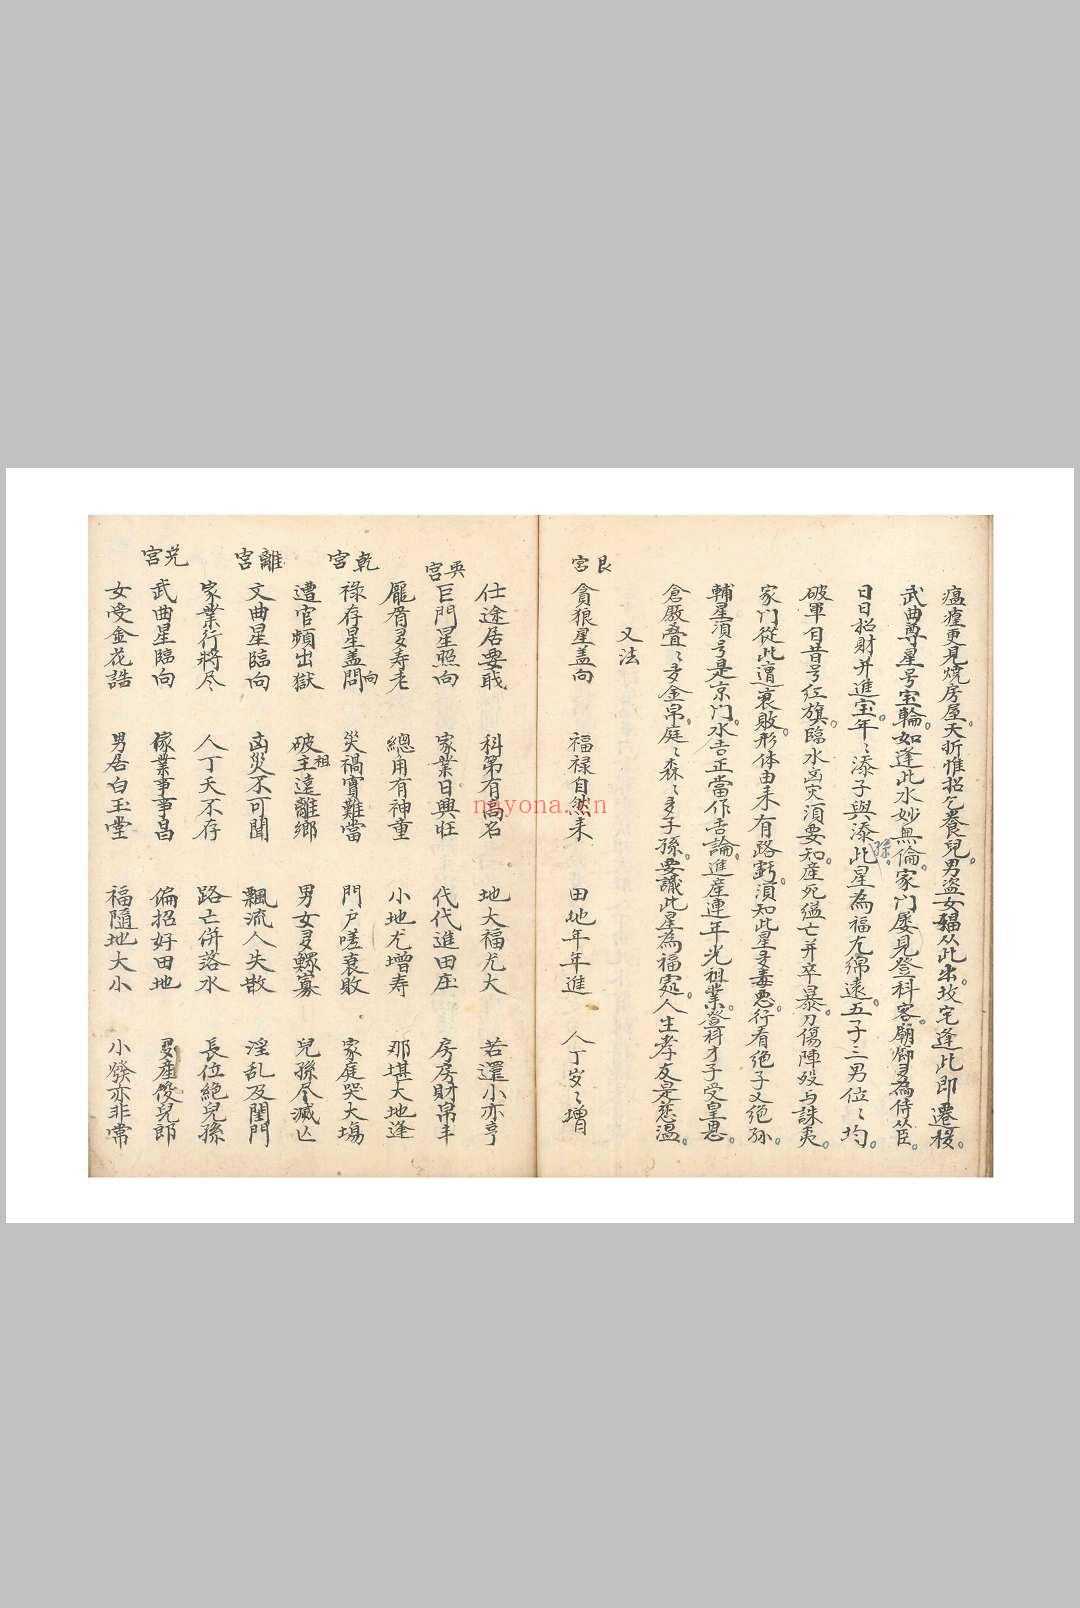 瘟瘽更見燒房屋。夭折惟招乞養兒。男盜女娼从此出坟宅逢此即遷移。
武曲尊星号宝輪。如逢此水妙無倫。家门屡見登科客。廟廊多為侍从臣。
日日招財并進宝。年〻添子與添孫。此星為福尤綿遠。五子三男位〻均。
破軍自昔号红旗。臨水高灾須要知。產死缢亡并卒暴。刀傷陣歿与誅夷。
家门從此遭衰敗。形体由来有路虧。須知此星多毒悪。行看绝子又绝孙。
輔星須号是京门。水吉正當作吉論。進産連年光祖業。登科才子受皇恩。
倉厫叠〻多金帛。庭〻森〻多子孫。要識此星為福處。人生孝友是慈温。
又法
艮宮
貪狼星盖向 福禄自然来 田地年年進 人丁岁〻增
仕途居要戢 科第有高名 地大福尤大 若還小亦亨
巽宮
巨門星照向 家業日興旺 代代進田庄 房房財帛丰
龎眉多寿老 總角有神童 小地尤增寿 那堪大地逢
乾宮
禄存星盖問向 災禍實難當 門户嗟衰敗 家庭哭大塲
遭官頻出獄 破主祖遠離鄉 男女多鰥寡 兒孫尽滅亾
離宮
文曲星臨向 凶災不可聞 飄流人失散 淫乱及閨門
家業行將尽 人丁夭不存 路亡併落水 長位絕兒孫
兌宮
武曲星臨向 傢業事事昌 偏招好田地 多產俊兒郎
女受金花誥 男居白玉堂 福隨地大小 小發亦非常
nayona.cn